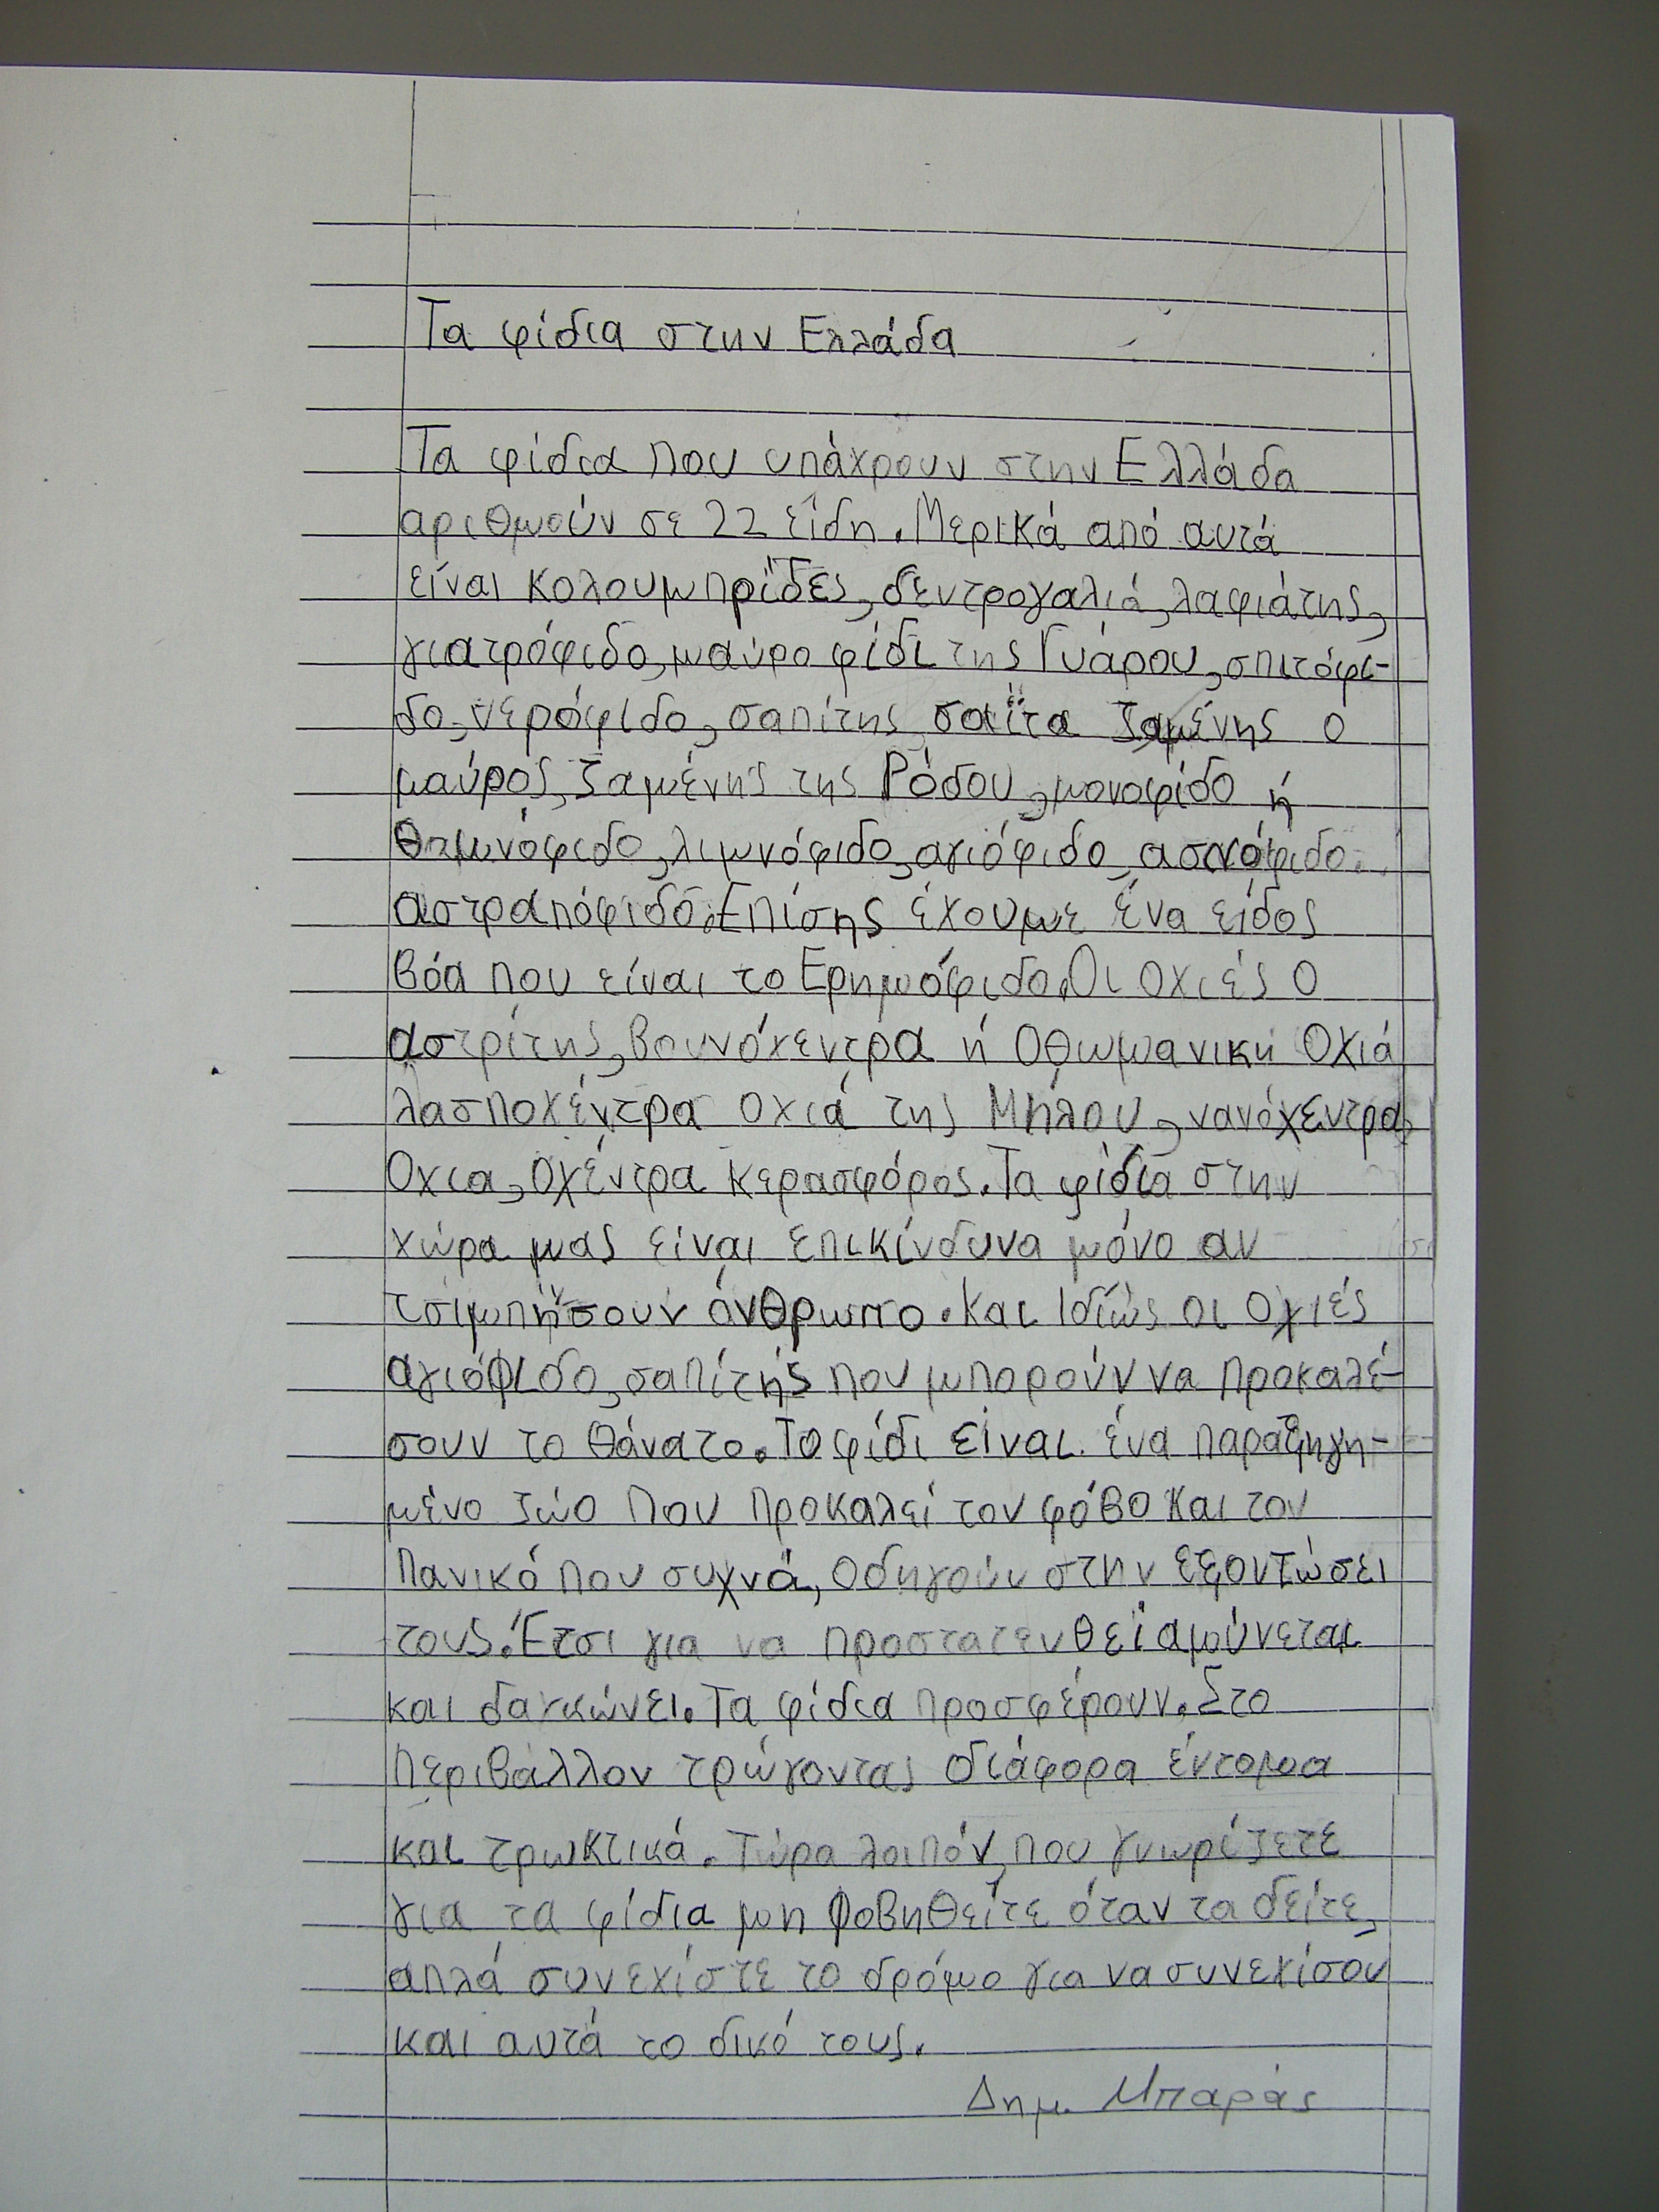 Τα φίδια στην Ελλάδα
Τα φίδια που υπάχρουν στην Ελλάδα
αριθμούν σε 22 είδη. Μερικά από αυτά
είναι κολουμπρίδες, δεντρογαλιά, λαφιάτης,
γιατρόφιδο, μαύρο φίδι της Γυάρου, σπιτόφι-
δο, νερόφιδο, σαπίτης, σαΐτα ζαμένης ο
μαύρος, ζαμένης της Ρόδου, μονοφίδο ή
θαμνόφιδο, λιμνόφιδο, αγιόφιδο,
αστραπόφιδο. Επίσης έχουμε ένα είδος
βόα που είναι το Ερημόφιδο. Οι οχιές ο
αστρίτης, βουνόχεντρα ή Οθωμανική Οχιά
λασποχέντρα οχιά της Μήλου, νανόχεντρα,
Οχια, οχέντρα κερασφόρος. Τα φίδια στην
χώρα μας είναι επικίνδυνα μόνο αν
τσιμπήσουν άνθρωπο. Και ιδίως οι οχιές
αγιόφιδο, σαπίτης που μπορούν να προκαλέ-
σουν το θάνατο. Το φίδι είναι ένα παρεξηγη-
μένο ζώο που προκαλεί τον φόβο και τον
πανικό που συχνά, οδηγούν στην εξοντώσει
τους. Έτσι για να προστατευθεί αμύνεται
και δαγκώνει. Τα φίδια προσφέρουν. Στο
περιβάλλον τρώγοντας διάφορα έντομα
και τρωκτικά. Τώρα λοιπόν, που γνωρίζετε
για τα φίδια μη φοβηθείτε όταν τα δείτε,
απλά συνεχίστε το δρόμο για να συνεχίσου
και αυτά το δικό τους.
Δημ. Μπαράς